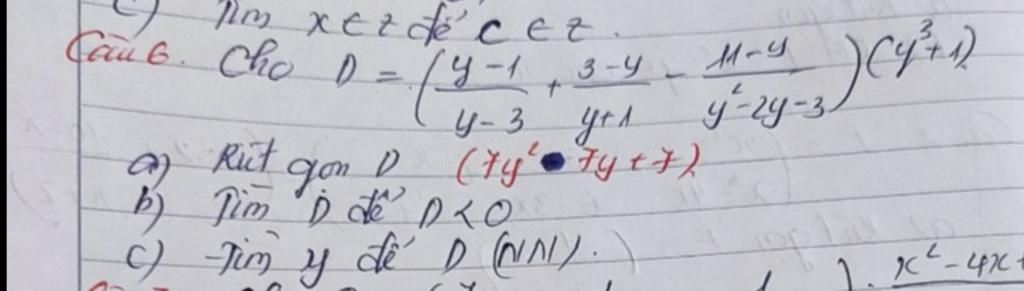 c) Tìm x ∈ z để C ∈ z.
Câu 6. Cho D = ((y-1)/(y-3) + (3-y)/(y+1) - (11-y)/(y²-2y-3)) (y³+1)
a) Rút gọn D (7y² 7y+7)
b) Tìm D để D<0
c) Tìm y để D (NN).
x²-4x+